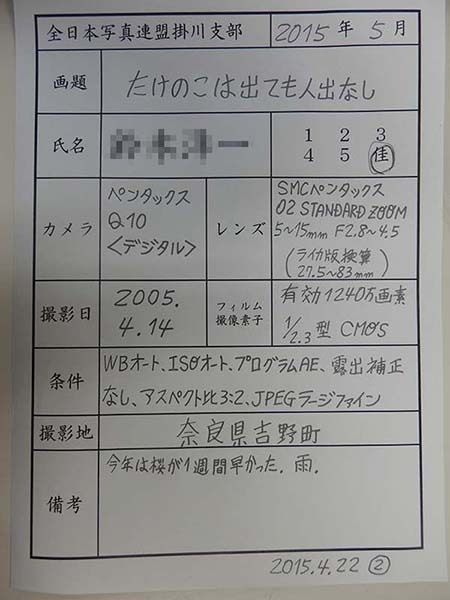 全日本写真連盟掛川支部 2015年 5月
画題 たけのこは出ても人出なし
氏名 1 2 3
4 5 佳
カメラ ペンタックス
Q10
<デジタル>
レンズ SMCペンタックス
02 STANDARD ZOOM
5~15mm F2.8~4.5
(ライカ版換算
27.5~83mm)
撮影日 2005.
4.14
フィルム
撮像素子
有効1240万画素
1/2.3型 CMOS
条件 WBオート、ISOオート、プログラムAE、露出補正
なし、アスペクト比3:2、JPEGラージファイン
撮影地 奈良県吉野町
備考 今年は桜が1週間早かった。雨.
2015.4.22 ②